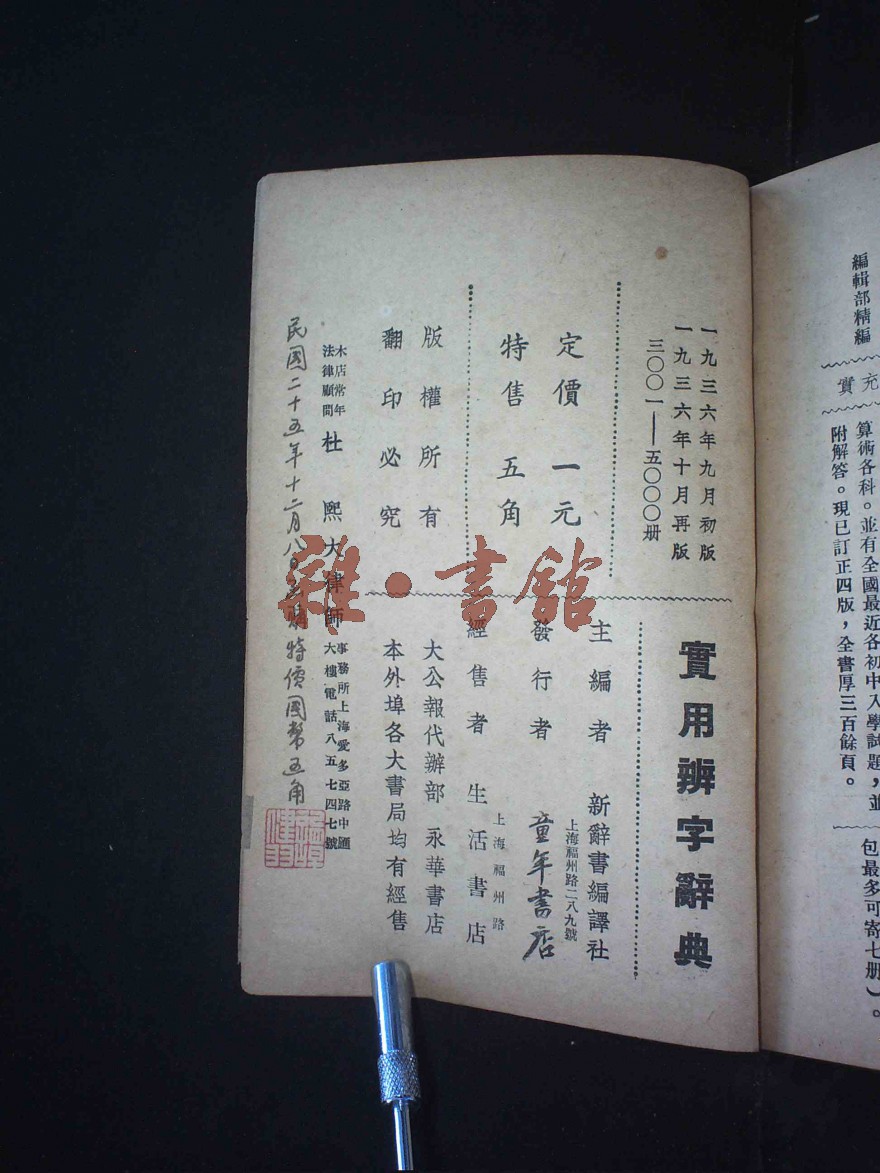 編輯部精編
充
實
算術各科。並有全國最近各初中入學試題，並
附解答。現已訂正四版，全書厚三百餘頁。
包最多可寄七册）。
一九三六年九月初版
一九三六年十月再版
三〇〇一——五〇〇〇册
定價一元
特售五角
版權所有
翻印必究
本店常年
法律顧問
杜熙大律師
事務所上海愛多亞路中匯
大樓電話八五七四七號
實用辨字辭典
主編者 新辭書編譯社
發行者 童年書店
上海福州路二八九號
經售者 生活書店
上海福州路
大公報代辦部 永華書店
本外埠各大書局均有經售
民國二十五年十二月八日
特價國幣五角
雜·書館